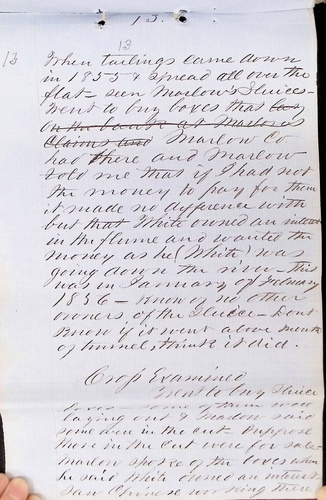 13.
13
13
When tailings came down
in 1855 & spread all over the
flat - seen Marlow's Sluices -
Went to buy boxes that lay
on the bank at Marlow's
Claims and Marlow Co
had there and Marlow
told me that if I had not
the money to pay for them
it made no difference with
but that White owned an interest
in the flume and wanted the
money as he (White) was
going down the river - this
was in January or February
1856 - know of no other
owners of the Sluice - Dont
know if it went above mouth
of tunnel, think it did.
Cross Examined
Went to buy Sluice
boxes - some of them were
laying out & Marlow said
some were in the cut - Suppose
those in the cut were for sale
Marlow spoke of the boxes when
he said White owned an interest
Saw Chinese working there